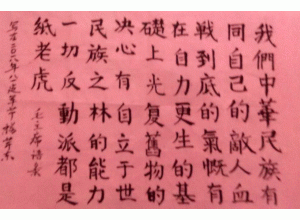 我們中華民族有
同自己的敵人血
戰到底的氣慨有
在自力更生的基
礎上光复舊物的
决心有自立于世
民族之林的能力
一切反動派都是
紙老虎
毛主席語彔